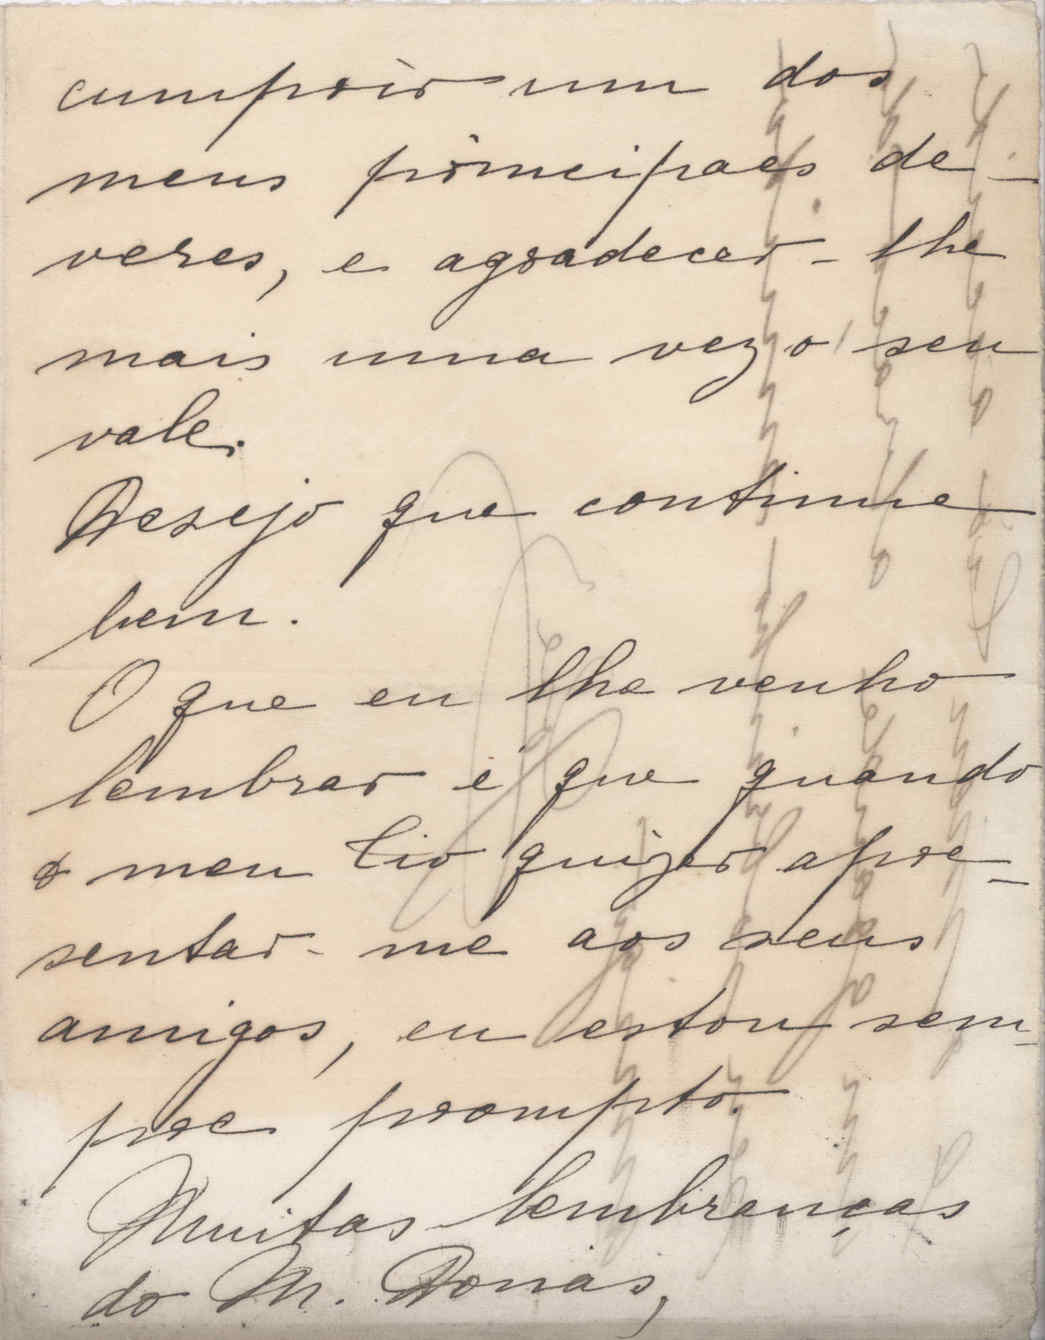 cumprir um dos
meus principaes de-
veres, e agradecer-lhe
mais uma vez o seu
vale.
Desejo que continue
bem.
O que eu lhe venho
lembrar é que quando
o meu tio quizer apre-
sentar-me aos seus
amigos, eu estou sem-
pre prompto.
Muitas lembranças
do M. Donas,